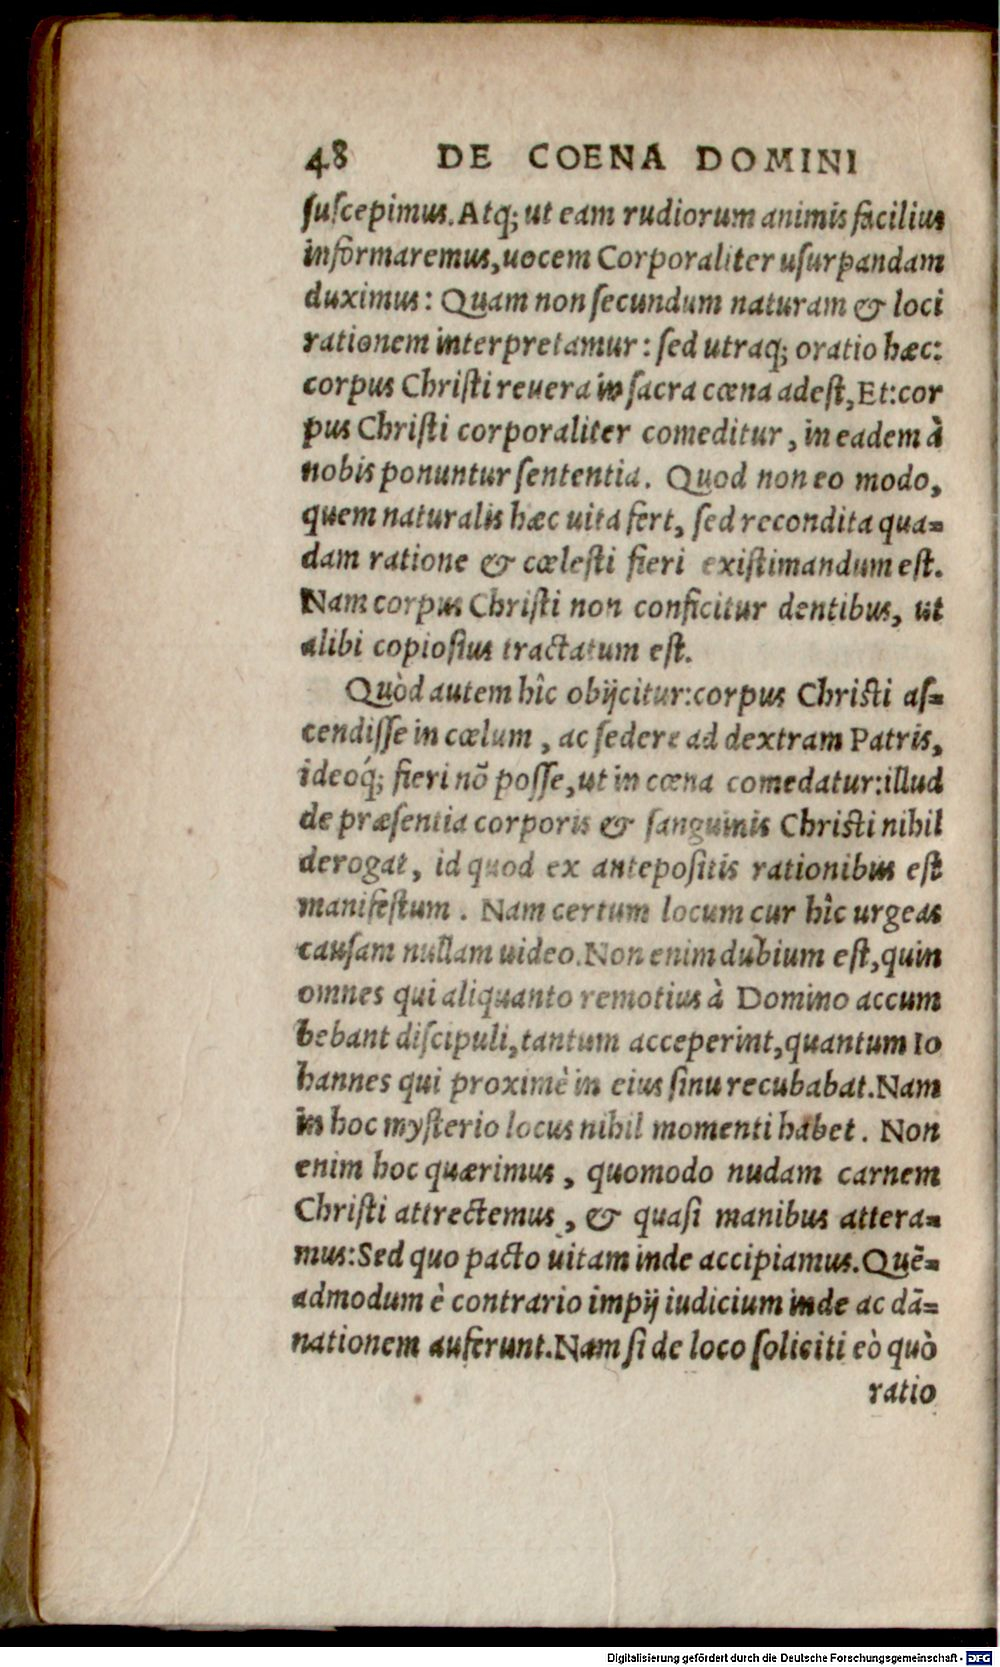 48 DE COENA DOMINI
ſuſcepimus. Atq; ut eam rudiorum animis facilius
informaremus, uocem Corporaliter uſurpandam
duximus: Quam non ſecundum naturam & loci
rationem interpretamur: ſed utraq; oratio hæc:
corpus Chriſti reuera in ſacra cœna adeſt, Et: cor
pus Chriſti corporaliter comeditur, in eadem à
nobis ponuntur ſententia. Quod non eo modo,
quem naturalis hæc uita fert, ſed recondita qua-
dam ratione & cœleſti fieri existimandum eſt.
Nam corpus Chriſti non conficitur dentibus, ut
alibi copioſius tractatum eſt.
Quòd autem hîc obijcitur: corpus Chriſti aſ-
cendiſſe in cœlum, ac ſedere ad dextram Patris,
ideoq́; fieri nõ poſſe, ut in cœna comedatur: illud
de præſentia corporis & ſanguinis Chriſti nihil
derogat, id quod ex antepoſitis rationibus eſt
manifeſtum. Nam certum locum cur hîc urgeas
cauſam nullam uideo. Non enim dubium eſt, quin
omnes qui aliquanto remotius à Domino accum
bebant diſcipuli, tantum acceperint, quantum Io
hannes qui proximè in eius ſinu recubabat. Nam
in hoc myſterio locus nihil momenti habet. Non
enim hoc quærimus, quomodo nudam carnem
Chriſti attrectemus, & quaſi manibus attera-
mus: Sed quo pacto uitam inde accipiamus. Quē-
admodum è contrario impij iudicium inde ac dā-
nationem auferunt. Nam ſi de loco ſoliciti eò quò
ratio
Digitalisierung gefördert durch die Deutsche Forschungsgemeinschaft - DFG